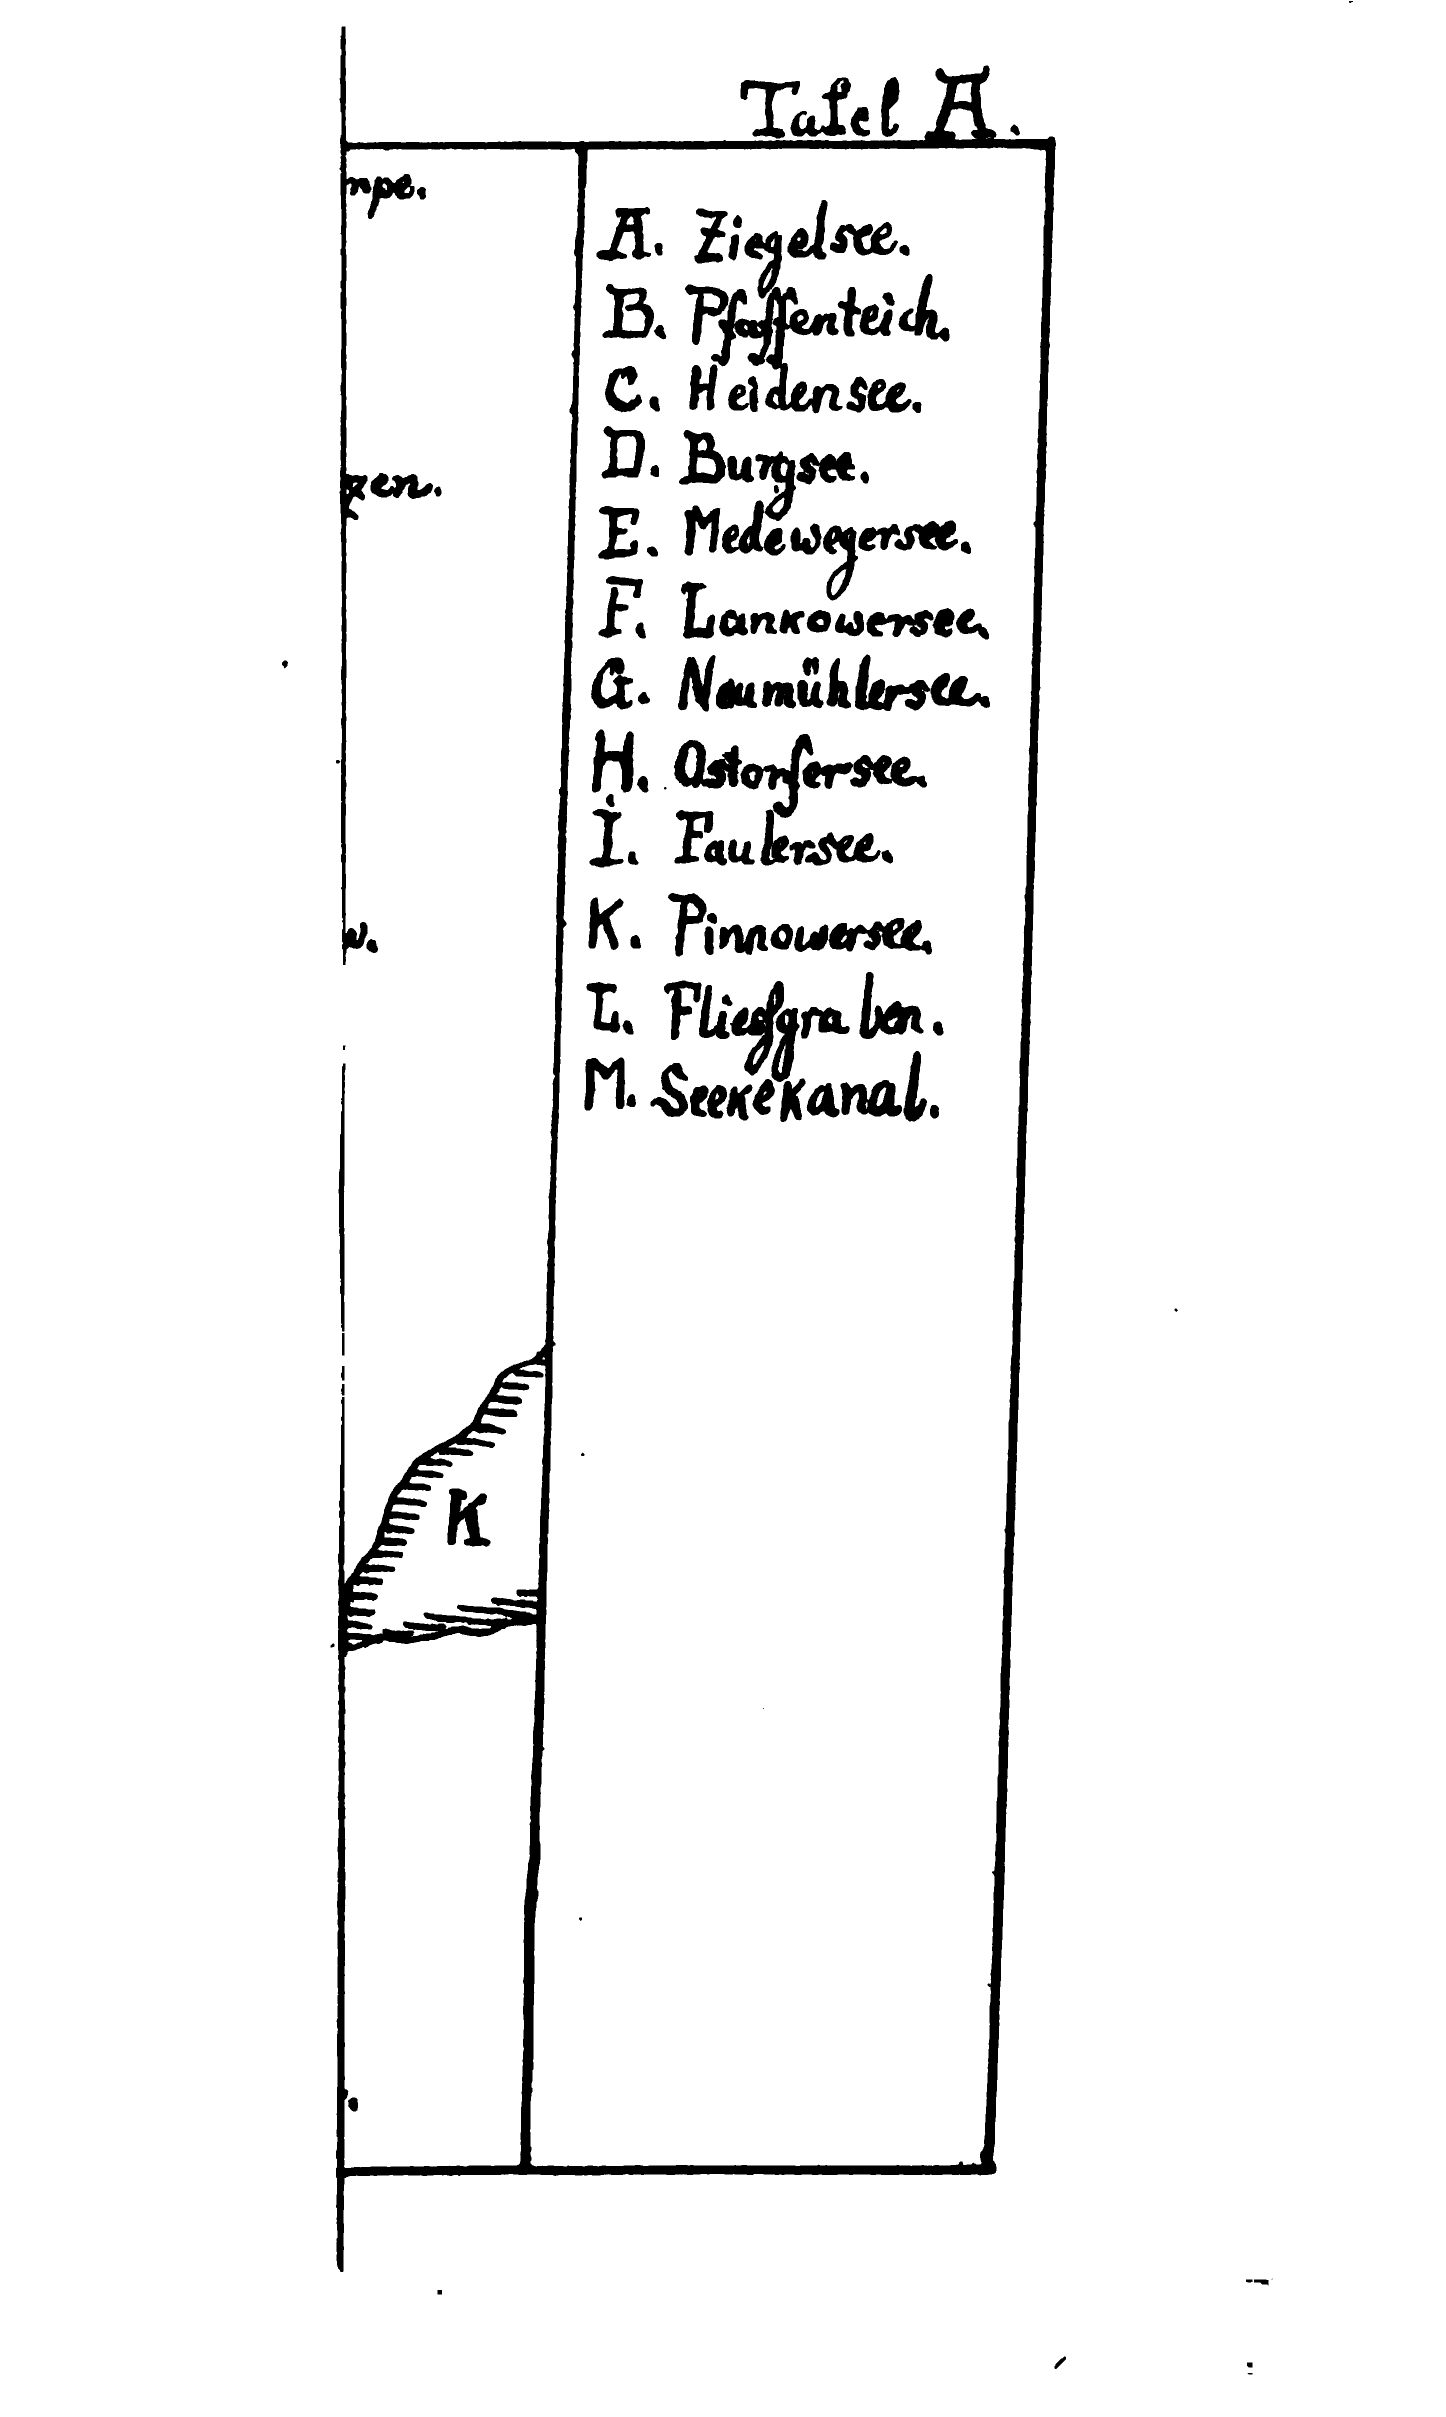 Tafel A.
npe.
A. Ziegelsee.
B. Pfaffenteich.
C. Heidensee.
D. Burgsee.
zen.
E. Medewegersee.
F. Lankowersee.
G. Neumühlersee.
H. Ostorfersee.
I. Faulersee.
K. Pinnowersee.
w.
L. Fliesßgraben.
M. Seekekanal.
K